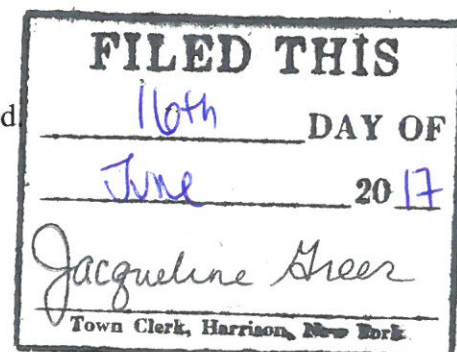 d
FILED THIS
16th DAY OF
June 2017
Jacqueline Greer
Town Clerk, Harrison, New York